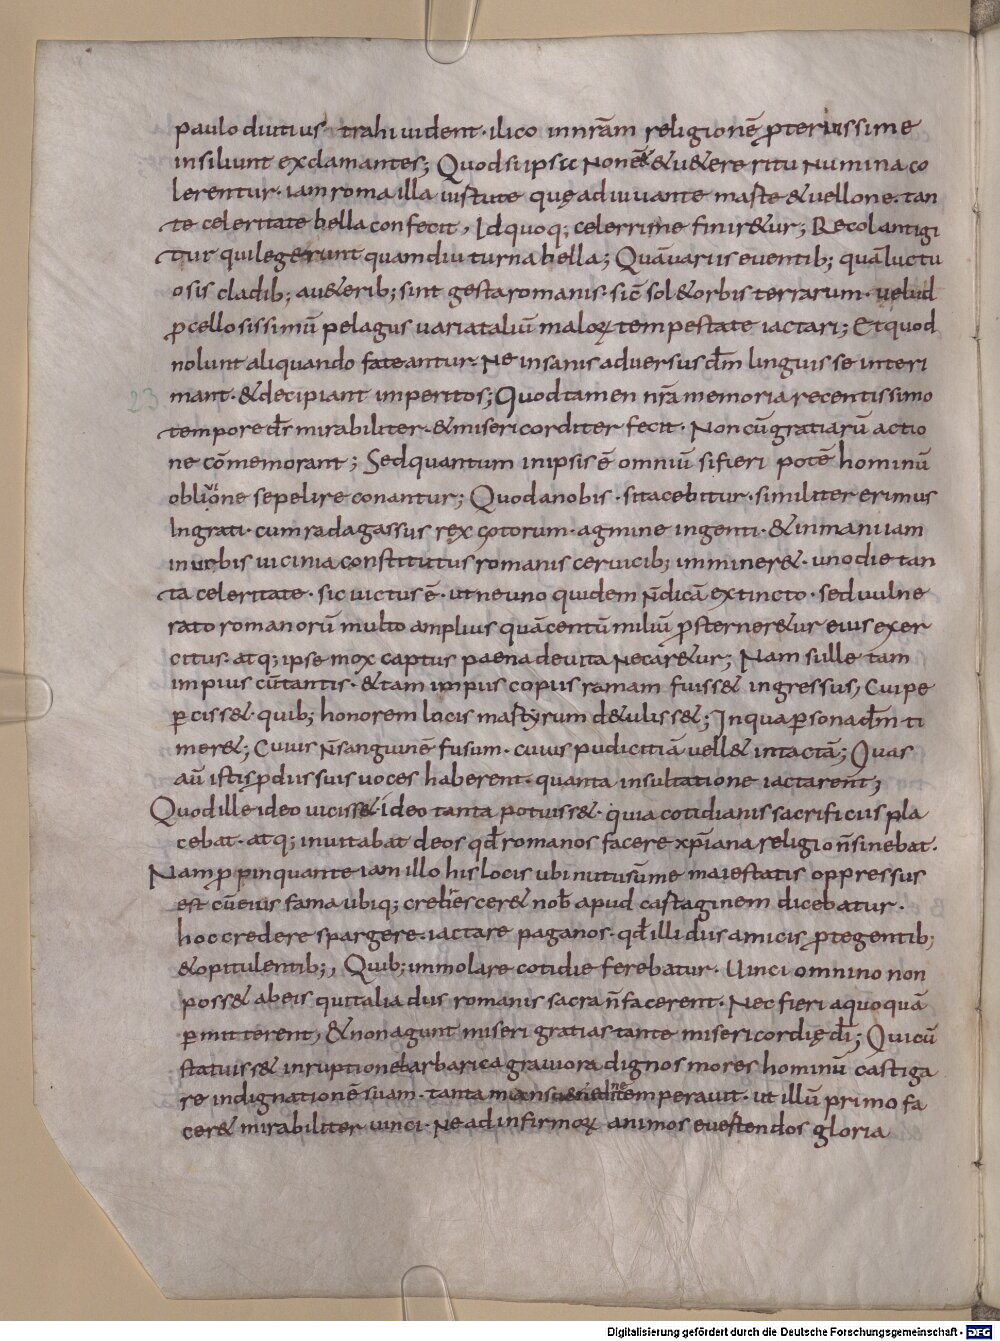 paulo diutius trahi uident· ilico innr̄am religionē ꝓteruissime
insiliunt exclamantes; Quodsi ipsa Nonēēt &u&ere ritu Numina co
lerentur· iam roma illa uirtute quę adiuuante marte &uellone· tan
te celeritate bella confecit, Idquoq; celerrime finir&ur; Recolant igi
tur qui legerunt quam diuturna bella; Quāuariis euentib; quāluctu
osis cladib; au&erib; sint gesta romanis· sic̄ sol& orbis terrarum· uelud
ꝓcellosissimū pelagus uaria taliū maloꝝ tempestate iactari; Et quod
nolunt aliquando fateantur· Ne insanis aduersus dm̄ linguis se interi
mant· & decipiant imperitos; Quod tamen nr̄a memoria recentissimo
23
tempore ds̄ mirabiliter· & misericorditer fecit· Non cū gratiarū actio
ne cōmemorant; Sed quantum in ipsis ē omniū si fieri potē hominū
obliuione sepelire conantur; Quod a nobis· si tacebitur· similiter erimus
Ingrati· cum radagassus rex gotorum· agmine ingenti· & inmani iam
in urbis uicinia constitutus romanis ceruicib; imminer&· uno die tan
ta celeritate· sic uictus ē· ut ne uno quidem n̄ dicā extincto· sed uulne
rato romanorū multo amplius quā centū miliū ꝓsterner&ur eius exer
citus· atq; ipse mox captus paena deuita Necar&ur; Nam si ille tam
impius cū tantis· & tam impiis copiis romam fuiss& ingressus, Cui pe
ꝑciss&· quib; honorem locis martyrum d&uliss&; In qua ꝑsona dm̄ ti
mer&; Cuius n̄ sanguinē fusum· cuius pudicitiā uell& intactā; Quas
aū isti ꝓ diis suis uoces haberent· quanta insultatione iactarent;
Quod ille ideo uiciss&· ideo tanta potuiss&· quia cotidianis sacrificiis pla
cebat· atq; inuitabat deos qd̄ romanos facere xp̄iana religio n̄ sinebat·
Nam ꝓpinquante iam illo his locis ubi nutu sūme maiestatis oppressus
est cū eius fama ubiq; crebresceret nob̄ apud cartaginem dicebatur·
hoc credere spargere· iactare paganos· qd̄ ille diis amicis ꝓtegentib;
& opitulentib;, Quib; immolare cotidie ferebatur· Uinci omnino non
poss& abeis qui talia diis romanis sacra n̄ facerent· Nec fieri aquoquā
ꝑmitterent, & non agunt miseri gratias tante misericordię dī; Qui cū
statuiss& inruptione barbarica grauiora dignos mores hominū castiga
re indignationē suam· tanta mansuetudine temperauit· ut illū primo fa
cer& mirabiliter uinci· Ne ad infirmoꝝ animos euertendos gloria
Digitalisierung gefördert durch die Deutsche Forschungsgemeinschaft - DFG